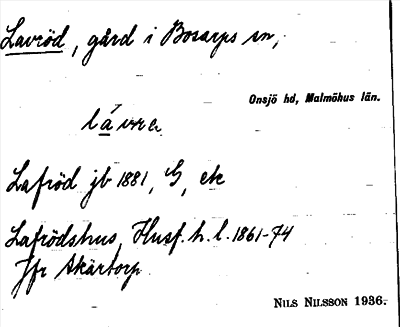 Lavröd, gård i Bosarps sn,
Onsjö hd, Malmöhus län.
lávre
Lafröd jb 1881, G, ek
Lafrödshus, Husf. h. l. 1861-74
Jfr Akärtorp
NILS NILSSON 1936.